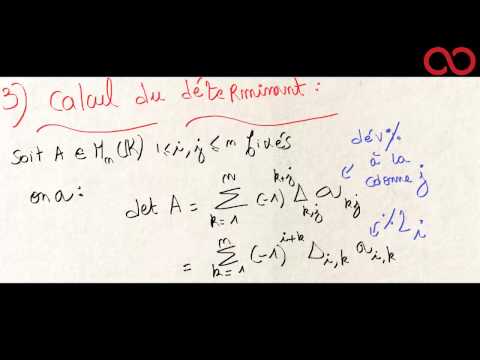 3) Calcul du déterminant :
Soit A ∈ M_n(K) 1≤i,j≤n fixés
on a :
det A = Σ_{k=1}^{n} (-1)^{k+j} Δ_{k,j} a_{k,j}
dév %
à la
colonne j
= Σ_{k=1}^{n} (-1)^{i+k} Δ_{i,k} a_{i,k}
% L_i